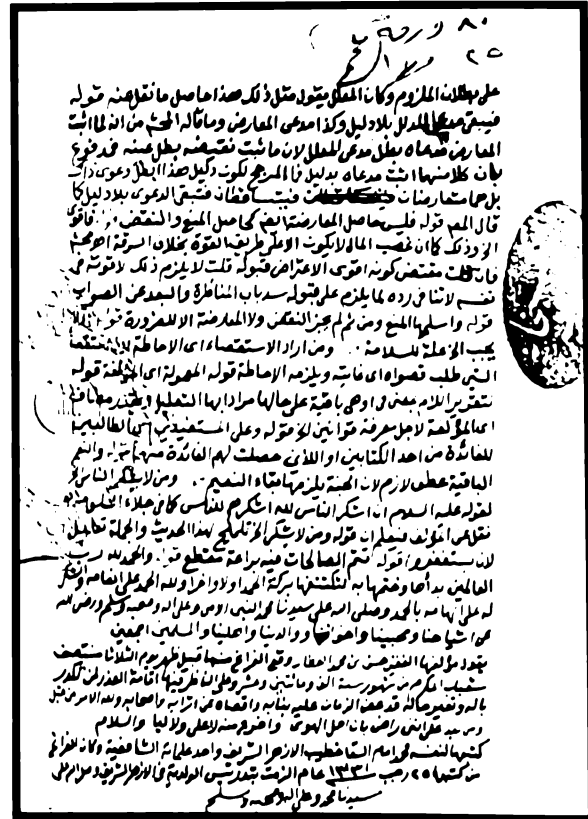 ٨٠ ورقة
٢٥
على بطلان الملزوم وكان المعلل يقول مثل ذلك هذا حاصل ما نقل عنه قوله
فيبقى مدعى المدلل بلا دليل وكذا مدعى المعارض وما قاله المحشى من انه لما اثبت
المعارض مدعاه بطل مدعى المعلل لان ما ثبت نقيضه بطل عينه مدفوع
بان كلا منهما اثبت مدعاه بدليل فما المرجح لكون دليل هذا ابطل دعوى ذاك
بل هما متعارضان فيتساقطان فتبقى الدعوى بلا دليل كما
قال المص قوله فليس حاصل المعارضة الخ كحاصل المنع والنقض
الخ وذلك كما ان غصب المال لا يكون الا عن طريق القوة بخلاف السرقة
فان قلت مقتضى كونه اقوى الاعتراض قبوله قلت لا يلزم ذلك لا قوته في
نفسه لا تنافي رده لما يلزم على قبوله سد باب المناظرة والبعد عن الصواب
قوله واسلمها المنع ومن ثم لم يجز النقض ولا المعارضة الا للضرورة قوله
يجب الخ علة للسلامة ومن اراد الاستقصاء اى الاحاطة
الشى طلب قصواه اى غايته ويلزمه الاحاطة قوله المعمولة اى المؤلفة قوله
لتقرير اللام بمعنى فى او هى باقية على حالها مرادا بها التعليل
اى المؤلفة لاجل معرفة قوانين الخ قوله وعلى المستفيدين اى الطالبين
للفائدة من احد الكتابين او الذين حصلت لهم الفائدة منهما قوله والنعم
الباقية عطف لازم لان الجنة يلزمها بقاء النعيم ومن لا يشكر الناس الخ
لقوله عليه السلام ان اشكر الناس لله اشكرهم للناس كما فى جلاء
نقل عن المؤلف فيعلم ان قوله ومن لا يشكر الخ تلميح لهذا الحديث والجملة تعليل
لان يستغفروا قوله تتم الصالحات فيه براعة مقطع قوله والحمد لله رب
العالمين بدأها وختمها به لتكتنفها بركة الحمد اولا واخرا ولله الحمد على انعامه والشكر
له على الهامه بالحمد وصلى الله على سيدنا محمد النبى الامى وعلى اله وصحبه وسلم ورضى الله
عن اشياخنا ومحبينا واخواننا ووالدينا واهلينا والمسلمين اجمعين
يقول مؤلفها الفقير حسن بن محمد العطار وقع الفراغ منها قبيل ظهر يوم الثلاثا منتصف
شعبان المكرم من شهور سنة الف ومائتين وعشر وعلى الناظر فيها اقامة العذر لمن تكدر
باله وتغير حاله قد عضه الزمان عليه بنابه واقصاه عن اترابه واصحابه ولله الامر من قبل
ومن بعد على اننى راض بان احمل الهوى واخرج منه لا على ولا ليا والسلام
كتبها لنفسه محمد امام السقا خطيب الازهر الشريف واحد علمائه الشافعية وكان الفراغ
من كتبها ٢٥ رجب ١٣٣١ عام الزمت بتدريس الولدية فى الازهر الشريف وصل الله على
سيدنا محمد وعلى اله وصحبه وسلم